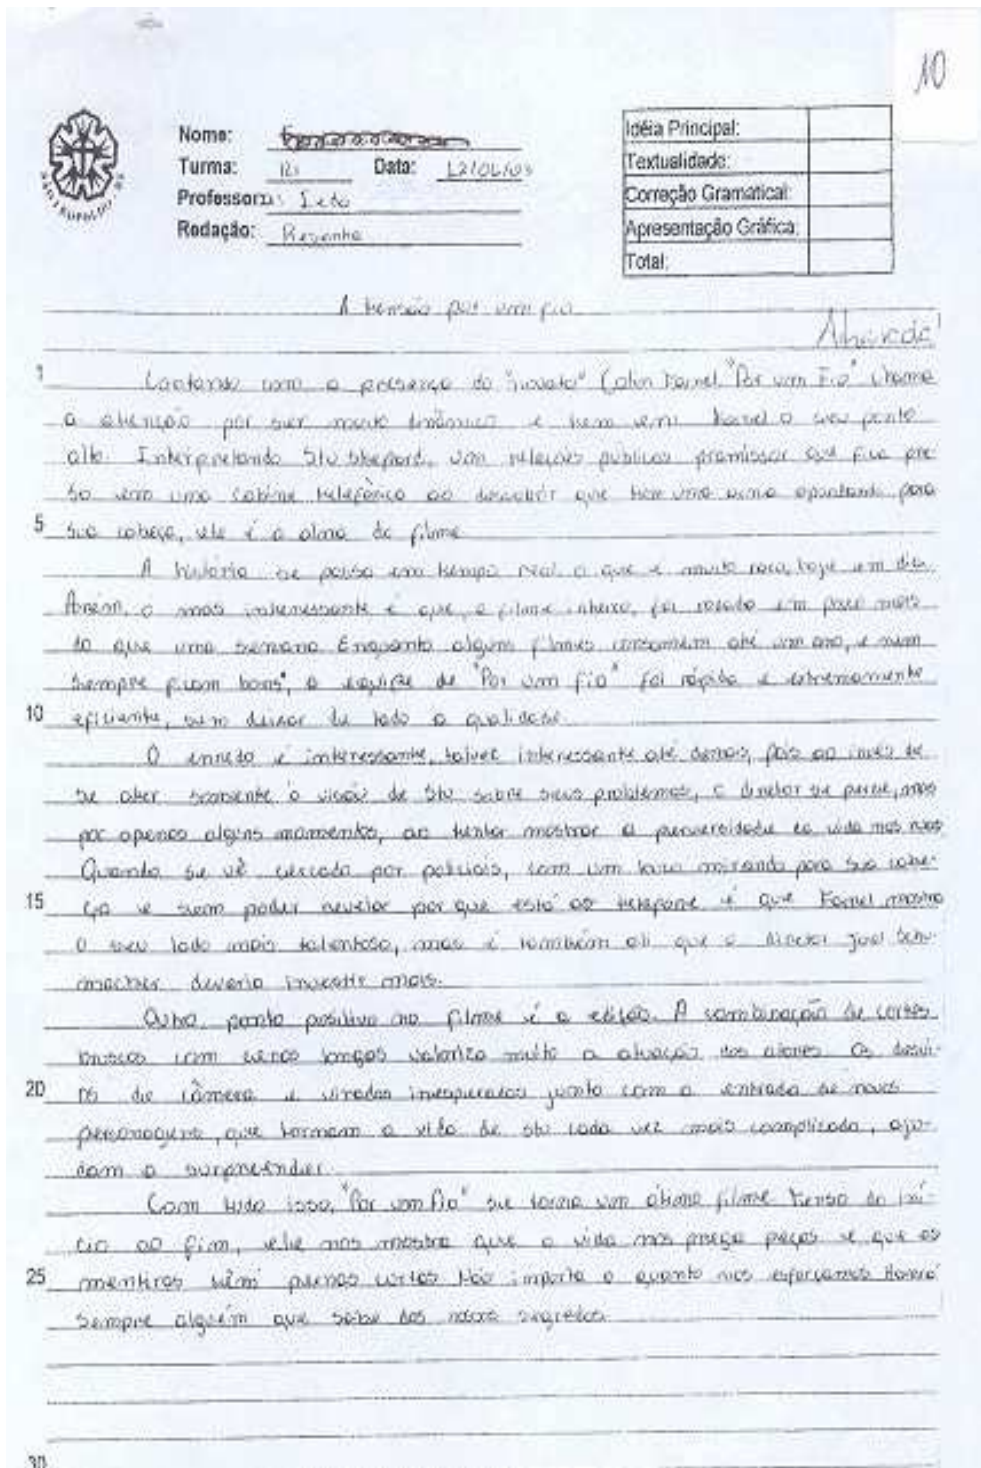 10
Nome:
Turma: Data: 12/06/03
Professora: Ieda
Redação: Resenha
Idéia Principal:
Textualidade:
Correção Gramatical:
Apresentação Gráfica:
Total:
SÃO LEOPOLDO - RS
A tensão por um fio
1 Contando com a presença do "novato" Colin Farrel, "Por um Fio" chama
a atenção por ser muito dinâmico e tem em Farrel o seu ponto
alto. Interpretando Stu Shepard, um relações públicas promissor que fica pre
so em uma cabine telefônica ao descobrir que tem uma arma apontando para
5 sua cabeça, ele é a alma do filme.
A história se passa em tempo real o que é muito raro, hoje em dia.
Porém, o mais interessante é que, o filme inteiro, foi rodado em pouco mais
do que uma semana. Enquanto alguns filmes consomem até um ano, e nem
sempre ficam bons", a equipe de "Por um fio" foi rápida e extremamente
10 eficiente, sem deixar de lado a qualidade.
O enredo é interessante, talvez interessante até demais, pois ao invés de
se ater somente à visão de Stu sobre seus problemas, o diretor se perde, mas
por apenas alguns momentos, ao tentar mostrar a perversidade da vida nas ruas
Quando se vê cercado por policiais, com um louco mirando para sua cabe-
15 ça e sem poder revelar por que está ao telefone é que Farrel mostra
o seu lado mais talentoso, mas é também ali que o diretor Joel Schu-
macher deveria investir mais.
Outro ponto positivo no filme é a edição. A combinação de cortes
bruscos com cenas longas valoriza muito a atuação dos atores. Os desvi-
20 os de câmera e viradas inesperadas junto com a entrada de novos
personagens, que tornam a vida de Stu cada vez mais complicada, aju-
dam a surpreender.
Com tudo isso, "Por um fio" se torna um ótimo filme. Tenso do iní-
cio ao fim, ele nos mostra que a vida nos prega peças e que as
25 mentiras têm pernas curtas. Não importa o quanto nos esforcemos. Haverá
sempre alguém que sabe dos nossos segredos.
30